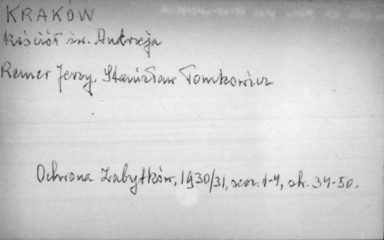 KRAKÓW
Kościół św. Andrzeja
Remer Jerzy. Stanisław Tomkowicz
Ochrona Zabytków, 1930/31, zesz. 1-4, str. 34-50.